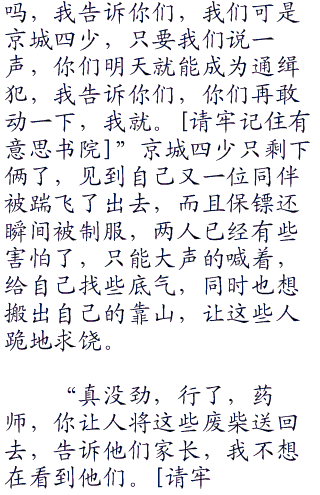 吗，我告诉你们，我们可是
京城四少，只要我们说一
声，你们明天就能成为通缉
犯，我告诉你们，你们再敢
动一下，我就。[请牢记住有
意思书院]”京城四少只剩下
俩了，见到自己又一位同伴
被踹飞了出去，而且保镖还
瞬间被制服，两人已经有些
害怕了，只能大声的喊着，
给自己找些底气，同时也想
搬出自己的靠山，让这些人
跪地求饶。
“真没劲，行了，药
师，你让人将这些废柴送回
去，告诉他们家长，我不想
在看到他们。[请牢